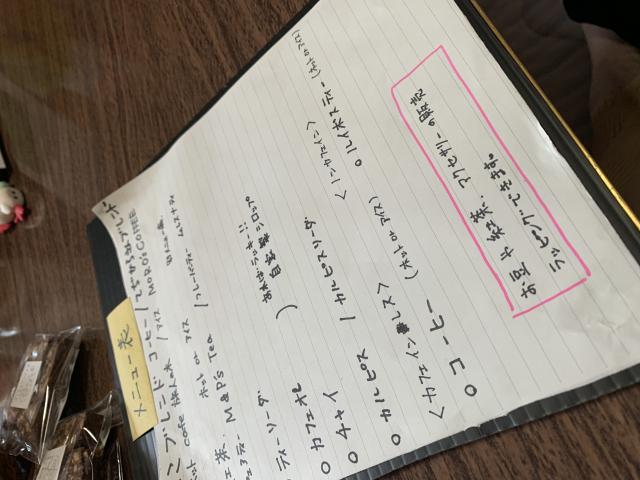 メニュー表
ブレンド コーヒー/てぢからのブレンド
アイス MORO'S COFFEE
ホット or アイス /フレーバーティー
茶. M&P'S TEA
ティーソーダ
あればラッキー!!
自家製シロップ
○ カフェオレ
○ チャイ
○ カルピス / カルピスソーダ
<ノンカフェイン>
○ ルイボスティー (ホット or アイス)
<カフェインレス>
○ コーヒー (ホット or アイス)
お豆や紅茶. アクセサリーの販売
ラッピングできます。